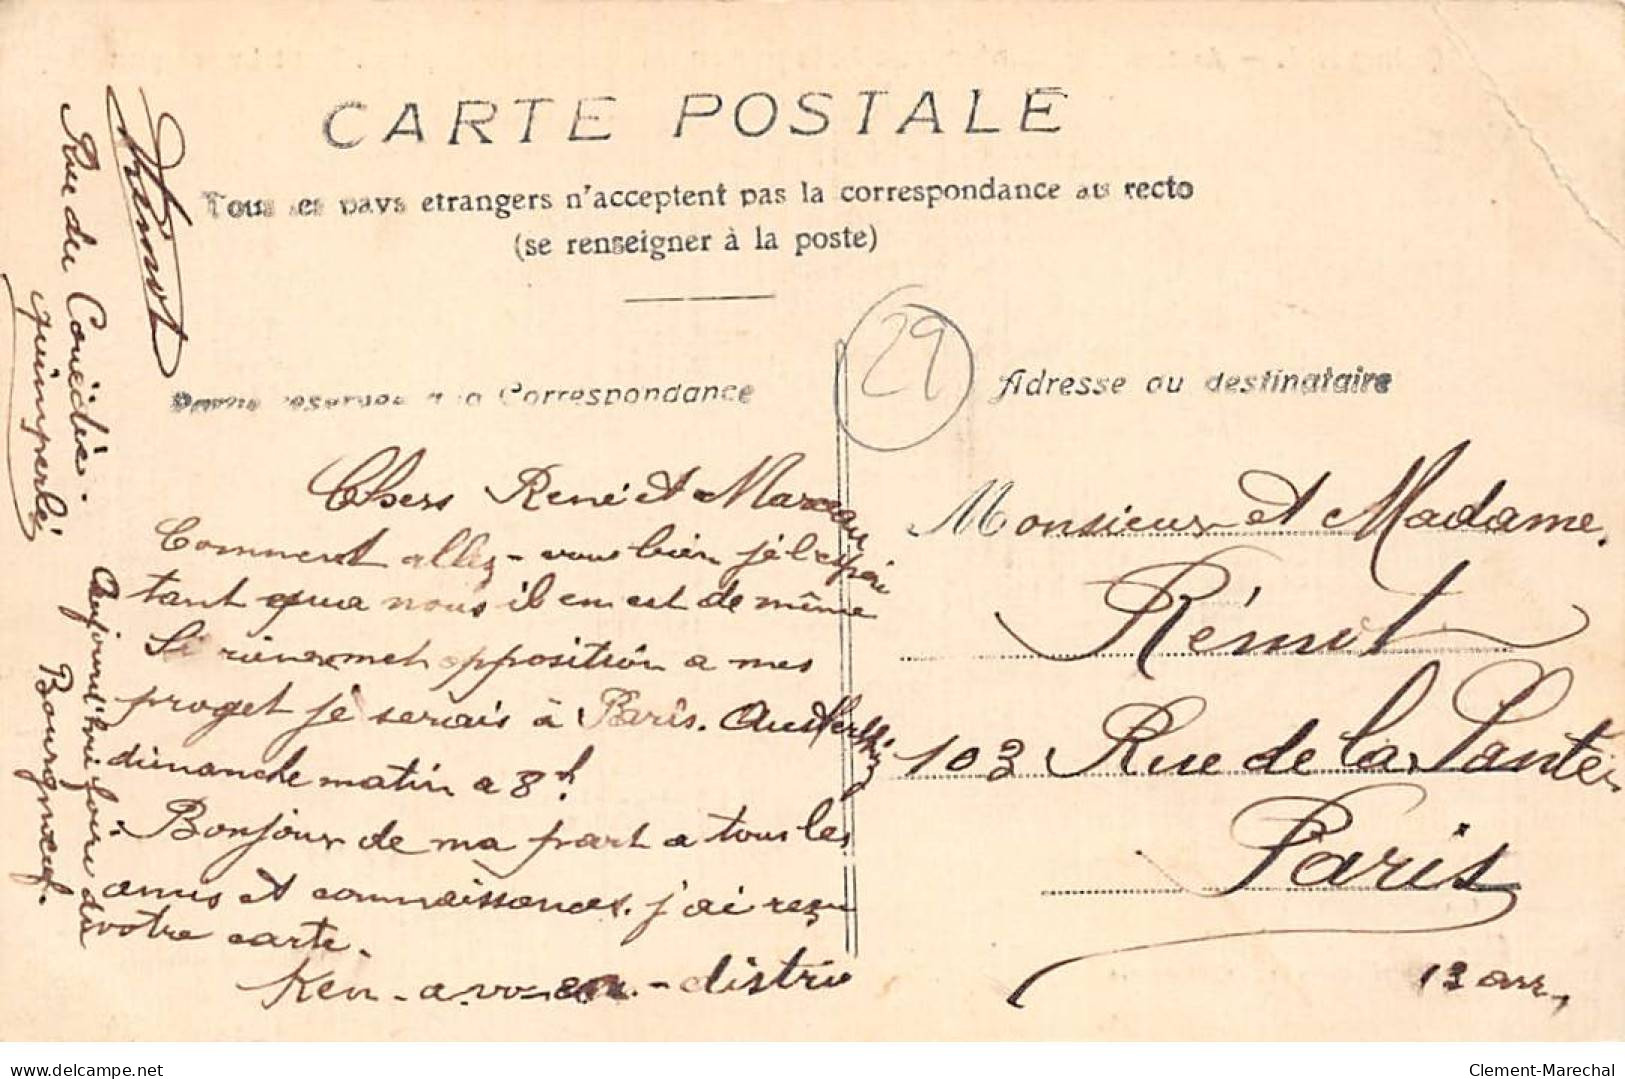 CARTE POSTALE
Tous les pays etrangers n'acceptent pas la correspondance au recto
(se renseigner à la poste)
Partie reservee a la Correspondance
Adresse du destinataire
29
Chers René et Marceau
Comment allez-vous bien je l'espère
tant qua nous il en est de même
Si rien met opposition a mes
proget je serais à Paris. Austerlitz
dimanche matin a 8h
Bonjour de ma part a tous les
amis et connaissances. j'ai reçu
votre carte.
Ken-a-vo - distrio
Monsieur et Madame.
Rémot
103 Rue de la Santé
Paris
13 arr,
Rue du Couëdic.
quimperlé
Aujourd'hui foire du
Bourgneuf.
delcampe.net
Clement-Marechal